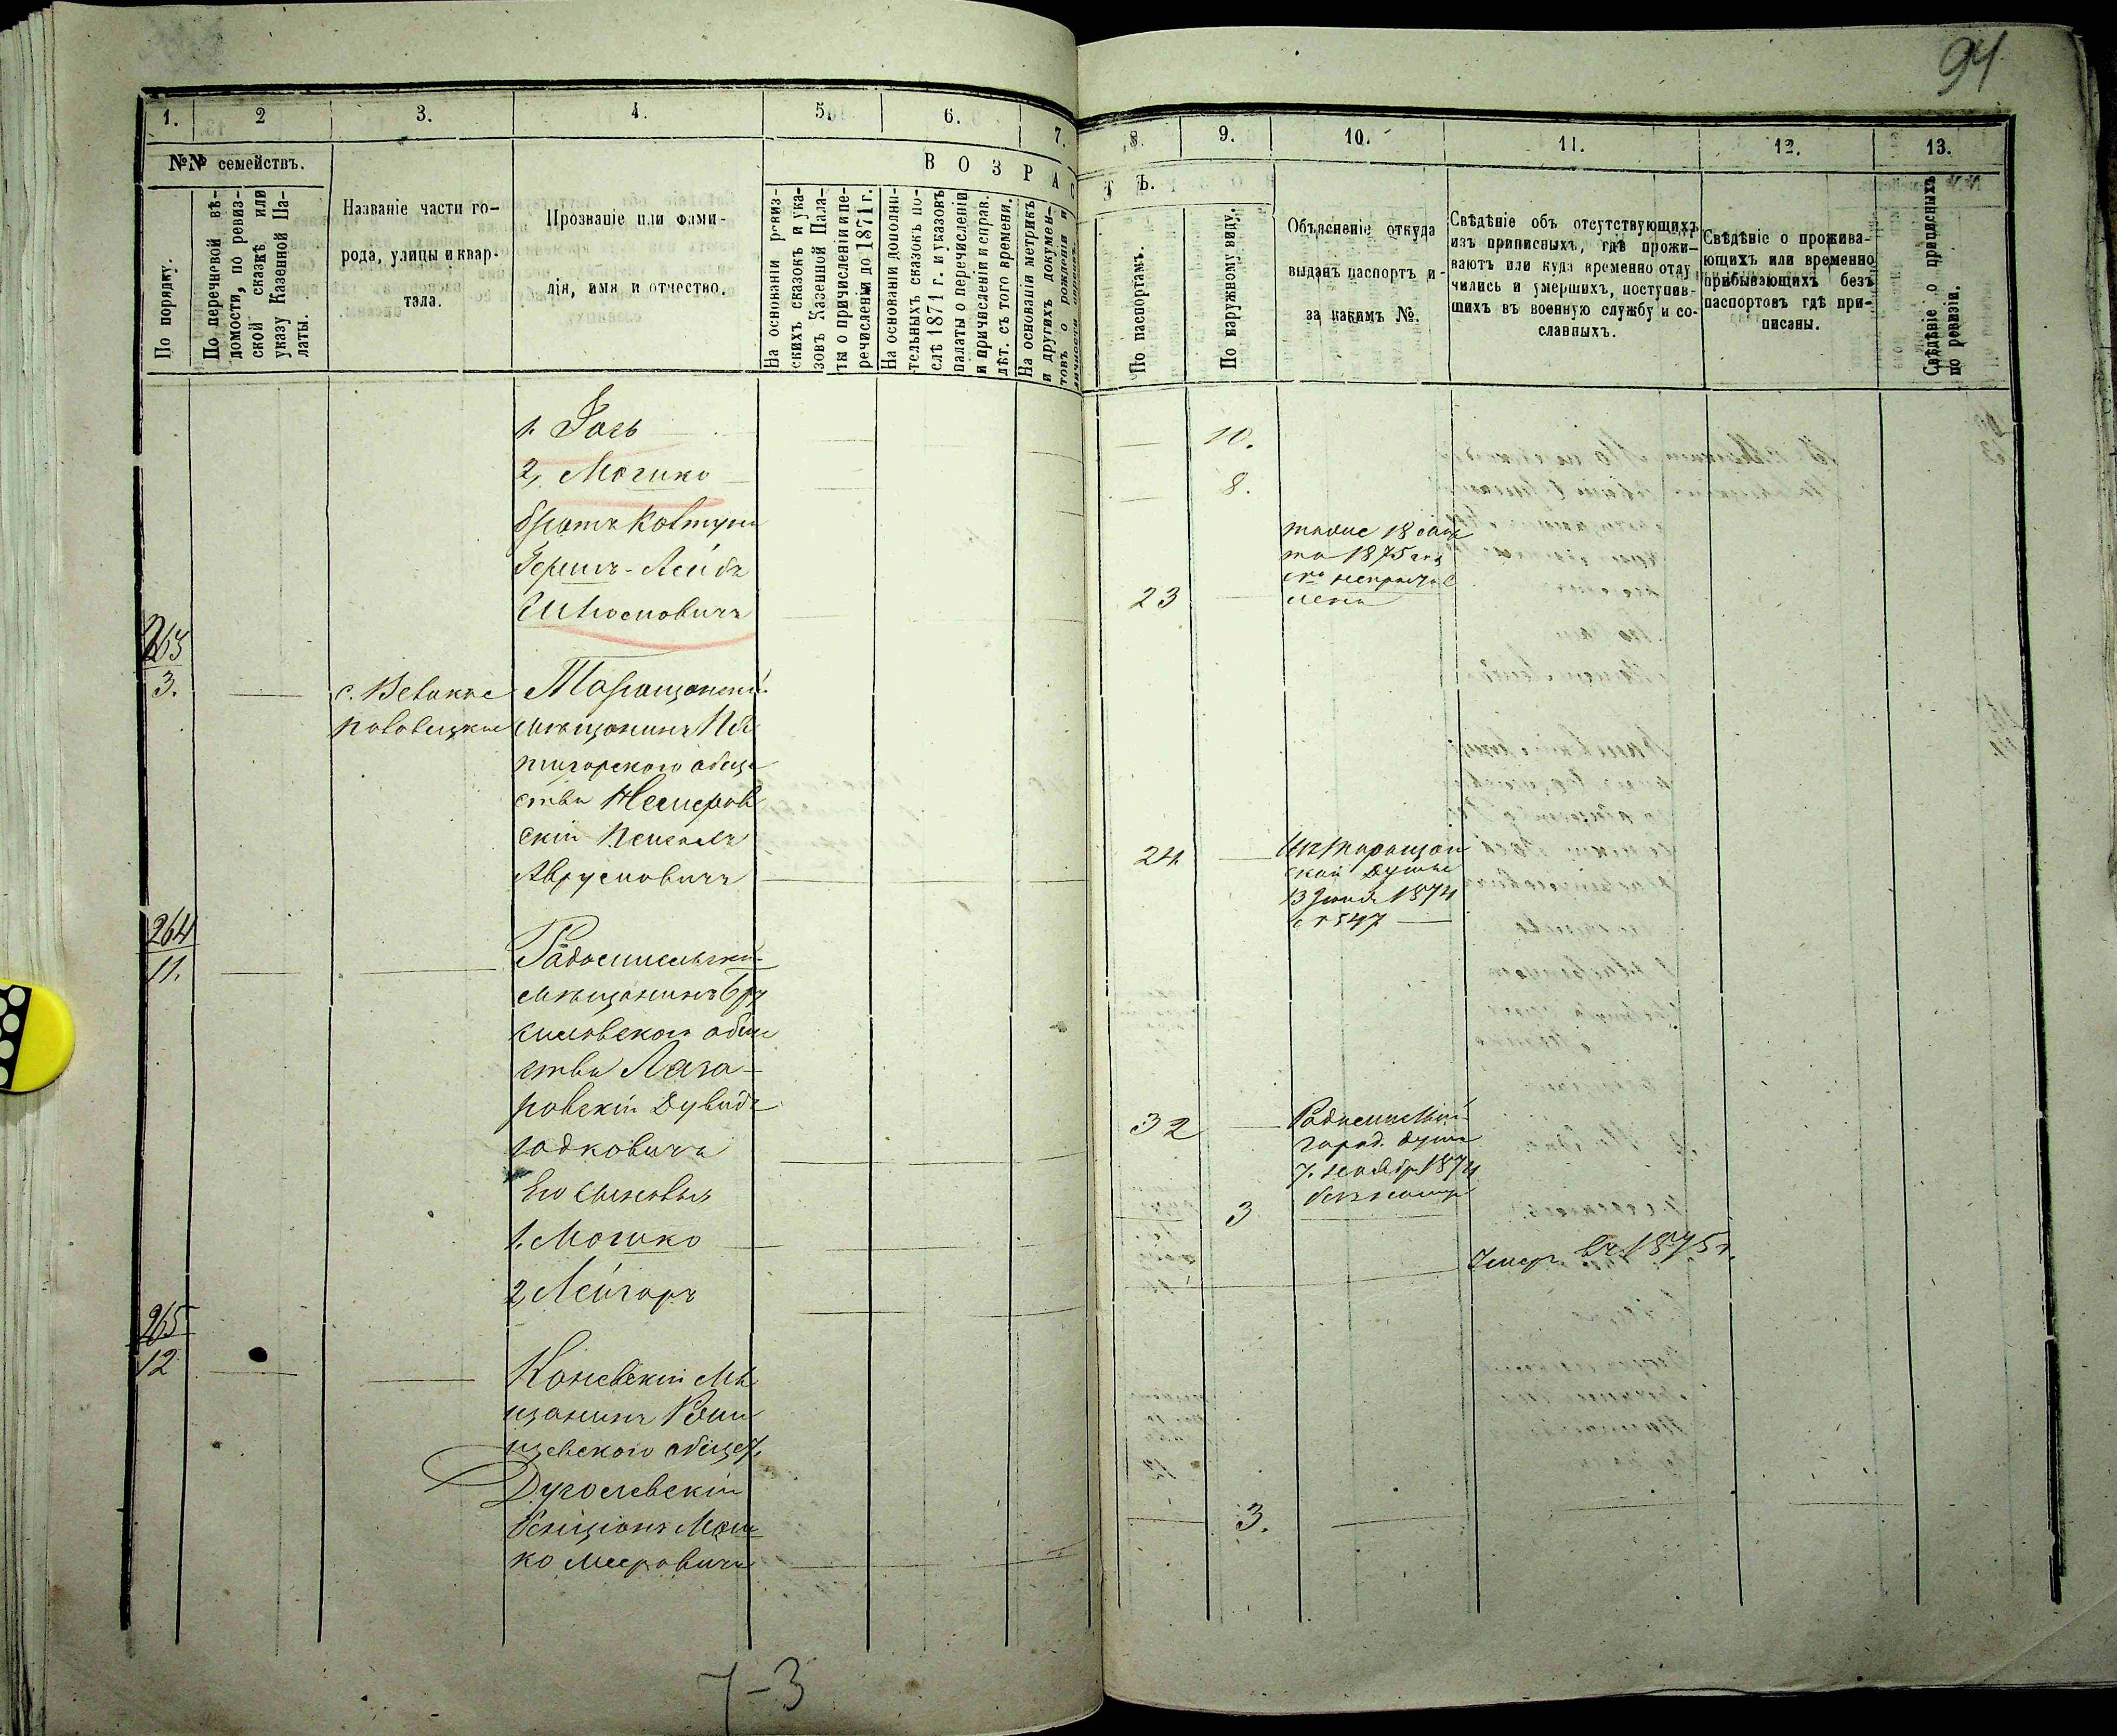 94
1.
2
3.
4.
5.
6.
7.
8.
9.
10.
11.
12.
13.
№№ семействъ.
По порядку.
По перечневой вѣ-
домости, по ревиз-
ской сказкѣ или
указу Казенной Па-
латы.
Названіе части го-
рода, улицы и квар-
тала.
Прозваніе или фами-
лія, имя и отчество.
ВОЗРАС
На основаніи ревиз-
скихъ сказокъ и ука-
зовъ Казенной Пала-
ты о причисленіи и пе-
речисленіи до 1871 г.
На основаніи дополни-
тельныхъ сказокъ по-
слѣ 1871 г. и указовъ
палаты о перечисленіи
и причисленіи и справ.
лѣт. съ того времени.
На основаніи метрикъ
и другихъ докумен-
товъ о рожденіи и
Т Ъ.
По паспортамъ.
По наружному виду.
Объясненіе откуда
выданъ паспортъ и
за какимъ №.
Свѣдѣніе объ отсутствующихъ
изъ приписныхъ, гдѣ прожи-
ваютъ или куда временно отлу
чились и умершихъ, поступив-
шихъ въ военную службу и со-
славныхъ.
Свѣдѣніе о прожива-
ющихъ или временно
прибывающихъ безъ
паспортовъ гдѣ при-
писаны.
Свѣдѣніе о приписныхъ
по ревизіи.
1.
10.
2, Мошко
8.
братъ Ковтуна
Гершъ-Лейбъ
23
тоже 18
1875
263
3.
с. Великое
Половецкое
Таращанскій
мѣщанинъ Пя
тигорского обще
ства Немеров
скій
Аврумовичъ
24
Изъ Таращан
ской Думы
13 1874
547
264
11.
Радомысльскій
мѣщанинъ Бру
силовского обще
ства Лаза-
ровскій Дувидъ
Іодковичъ
32
Радомысльской
город. дума
7. ноября 1874
Его сыновья
1. Мошко
3
2, Лейзоръ
Умеръ въ 1875 г.
265
12
Каневскій мѣ
щанинъ
щевского общес.
Беніціонъ Мош
ко Мееровичъ
3.
7-3